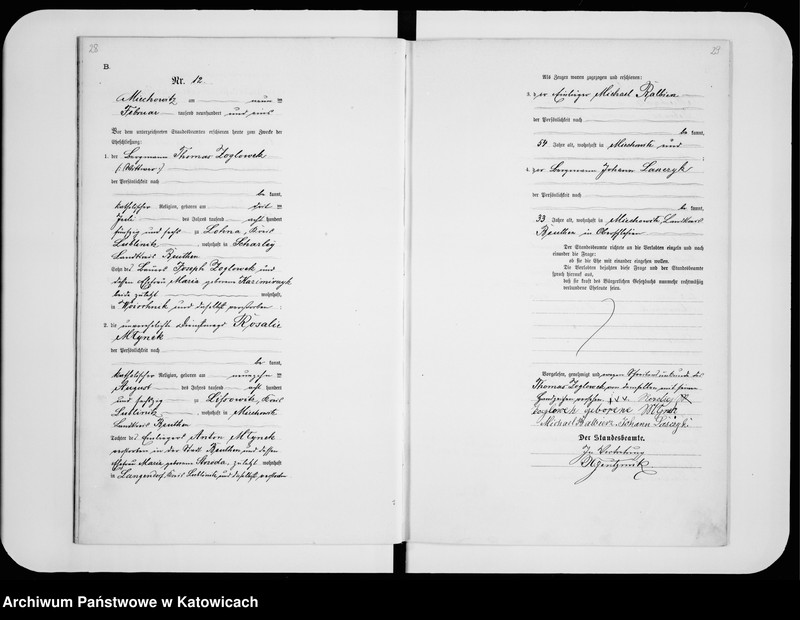 28
B.
Nr. 12
Miechowitz am neun ten
Februar tausend neunhundert und eins
Vor dem unterzeichneten Standesbeamten erschienen heute zum Zwecke der
Eheschließung:
1. der Bergmann Thomas Zoglowek
(Wittwer)
der Persönlichkeit nach
be kannt,
katholischer Religion, geboren am
Juli des Jahres tausend acht hundert
fünfzig und sechs zu Lohna, Kreis
Lublinitz, wohnhaft in Scharley
Landkreis Beuthen
Sohn des Joseph Zoglowek und
dessen Ehefrau Maria geborene Kazimirczyk
beide zuletzt wohnhaft
in und daselbst verstorben
2. die unverehelichte Dienstmagd Rosalie
Mlynek
der Persönlichkeit nach
be kannt,
katholischer Religion, geboren am neunzehn ten
August des Jahres tausend acht hundert
und sechzig zu Lissowitz, Kreis
Lublinitz, wohnhaft in Miechowitz
Landkreis Beuthen
Tochter des Einliegers Anton Mlynek
verstorben in der Stadt Beuthen, und dessen
Ehefrau Maria geborene zuletzt wohnhaft
in Langendorf, Kreis Lublinitz, und daselbst verstorben
29
Als Zeugen waren zugezogen und erschienen:
3. der Einlieger Michael
der Persönlichkeit nach
be kannt,
54 Jahre alt, wohnhaft in Miechowitz und
4. der Bergmann Johann
der Persönlichkeit nach
be kannt,
33 Jahre alt, wohnhaft in Miechowitz, Landkreis
Beuthen in Oberschlesien
Der Standesbeamte richtete an die Verlobten einzeln und nach
einander die Frage:
ob sie die Ehe mit einander eingehen wollen.
Die Verlobten bejahten diese Frage und der Standesbeamte
sprach hierauf aus,
daß sie kraft des Bürgerlichen Gesetzbuchs nunmehr rechtmäßig
verbundene Eheleute seien.
Vorgelesen, genehmigt und wegen Schreibensunkunde des
Thomas Zoglowek von demselben mit seinem
Handzeichen versehen. +++
geborene Mlynek
Michael Johann
Der Standesbeamte.
In Vertretung
Archiwum Państwowe w Katowicach